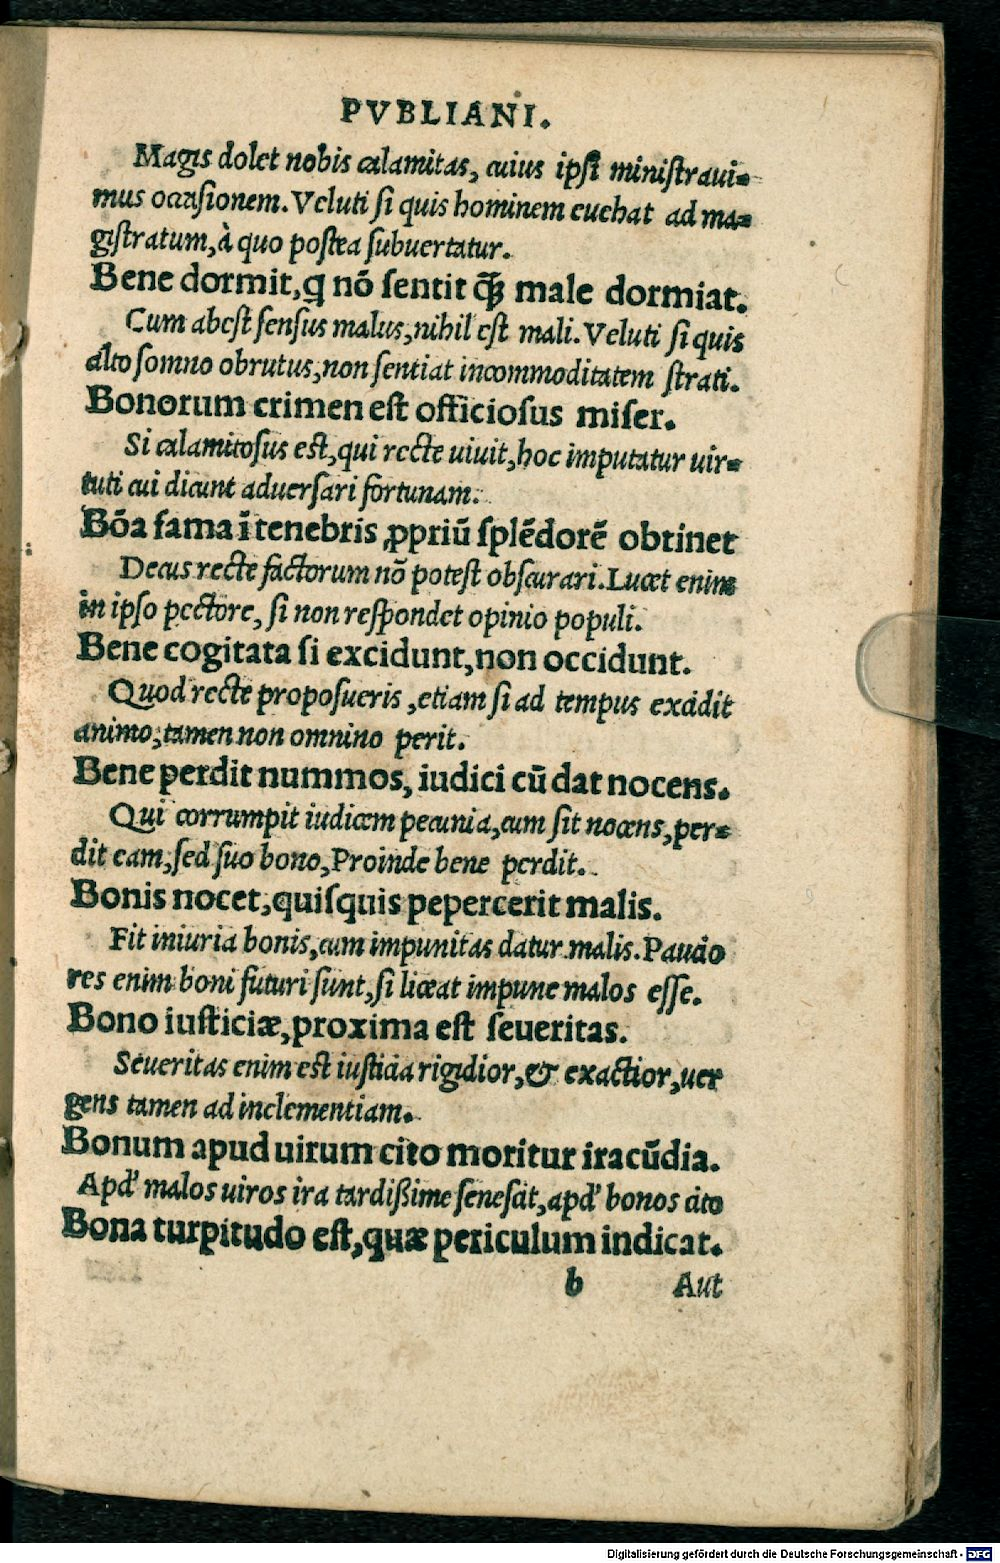 PVBLIANI.
Magis dolet nobis calamitas, cuius ipsi ministraui-
mus occasionem. Veluti si quis hominem euehat ad ma-
gistratum, à quo postea subuertatur.
Bene dormit, q nō sentit q̃ȝ male dormiat.
Cum abest sensus malus, nihil est mali. Veluti si quis
alto somno obrutus, non sentiat incommoditatem strati.
Bonorum crimen est officiosus miser.
Si calamitosus est, qui recte uiuit, hoc imputatur uir-
tuti cui dicunt aduersari fortunam.
Bōa fama ī tenebris ꝓpriū splēdorē obtinet
Decus recte factorum nō potest obscurari. Lucet enim
in ipso pectore, si non respondet opinio populi.
Bene cogitata si excidunt, non occidunt.
Quod recte proposueris, etiam si ad tempus excidit
animo, tamen non omnino perit.
Bene perdit nummos, iudici cū dat nocens.
Qui corrumpit iudicem pecunia, cum sit nocens, per-
dit eam, sed suo bono, Proinde bene perdit.
Bonis nocet, quisquis pepercerit malis.
Fit iniuria bonis, cum impunitas datur malis. Paucio
res enim boni futuri sunt, si liceat impune malos esse.
Bono iusticiæ, proxima est seueritas.
Seueritas enim est iusticia rigidior, & exactior, uer
gens tamen ad inclementiam.
Bonum apud uirum cito moritur iracūdia.
Apd' malos uiros ira tardißime senescit, apd' bonos cito
Bona turpitudo est, quæ periculum indicat.
b Aut
Digitalisierung gefördert durch die Deutsche Forschungsgemeinschaft - DFG